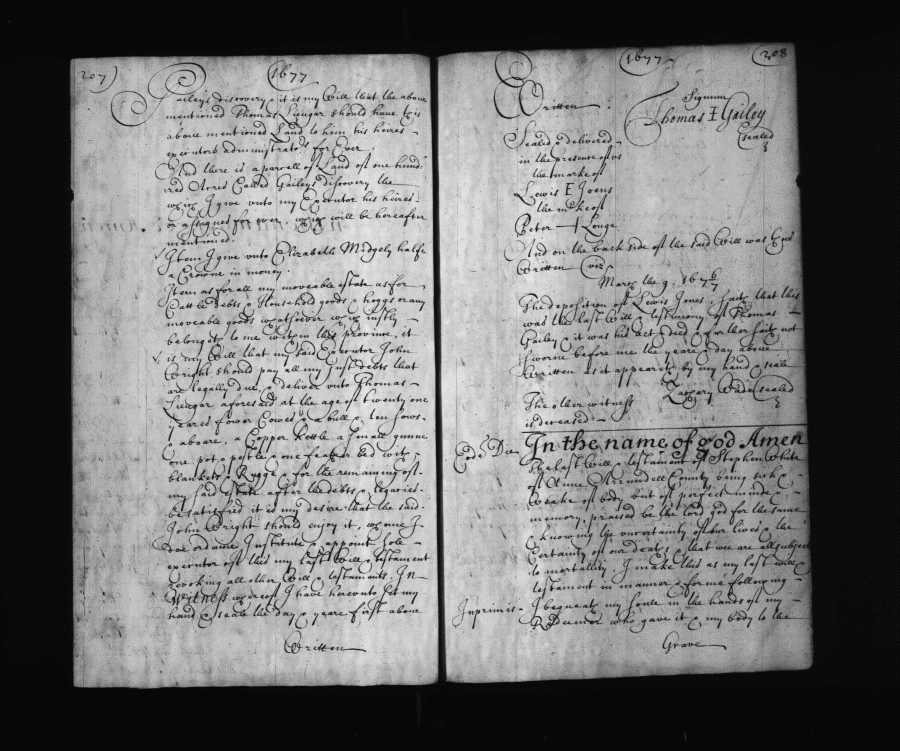 207)
1677
Gaileys discovery & it is my Will that the above
mentioned Thomas Lurgar should have this
above mentioned Land to him his heires
executors administrators for Ever.
And there is a parcell of Land of one hund
red Acres Called Gaileys discovery the
wch I give unto my Executor his heires
or assignes for ever. wch will be hereafter
mentioned.
Item I give unto Elizabeth Midgely halfe
a Crowne in money.
Item as for all my moveable estate as for
Cattle debts & Household goods & hoggs or any
moveable goods whatsoever wch justly
belongeth to me within this province, it
is my Will that my said Executor John
Wright should pay all my Just debts that
are legally due, & deliver unto Thomas
Lurgar aforesaid at the age of twenty one
yeares fower Cowes & a bull & ten sows
& a boare, a Copper Kettle a small gunne
one pot & pestle & one feather bed with
blankets & Rugge & for the remaining of
my said estate after the debts & legacies
be satisfied it is my desire that the said
John Wright should enjoy it, whome I
doe ordaine Institute & appoint sole
executor of this my last Will & testament
revoking all other Will & testaments. In
Witness whereof I have hereunto set my
hand & seale the day & yeare first above
Written
1677
208
Written.
Signum
Thomas I Gailey
sealed
Sealed & delivered
in the presence of us
the marke of
Lewis E Joens
the marke of
Peter Longe
And on the back side of the said Will was thus
Written Viz
March the 9. 167 6/7
The deposition of Lewis Jones, saith that this
was the last Will & testimony of Thomas
Gailey & it was his act & deed & further saith not
Sworne before me the yeare & day above
Written as it appeareth by my hand & seale
Zachary Wade sealed
The other witness
is deceased
In the name of god Amen
The last Will & testament of Stephen White
of Anne Arrundell County being sick &
Weake of body but of perfect minde &
memory, praised be the lord god for the same
& knowing the uncertainty of our lives & the
Certainty of our death, & that wee are all subject
to mortallity, I make this as my last will &
testament in manner & forme following
Inprimis I bequeath my soule in the hands of my
Redeemer who gave it & my body to the
Grave